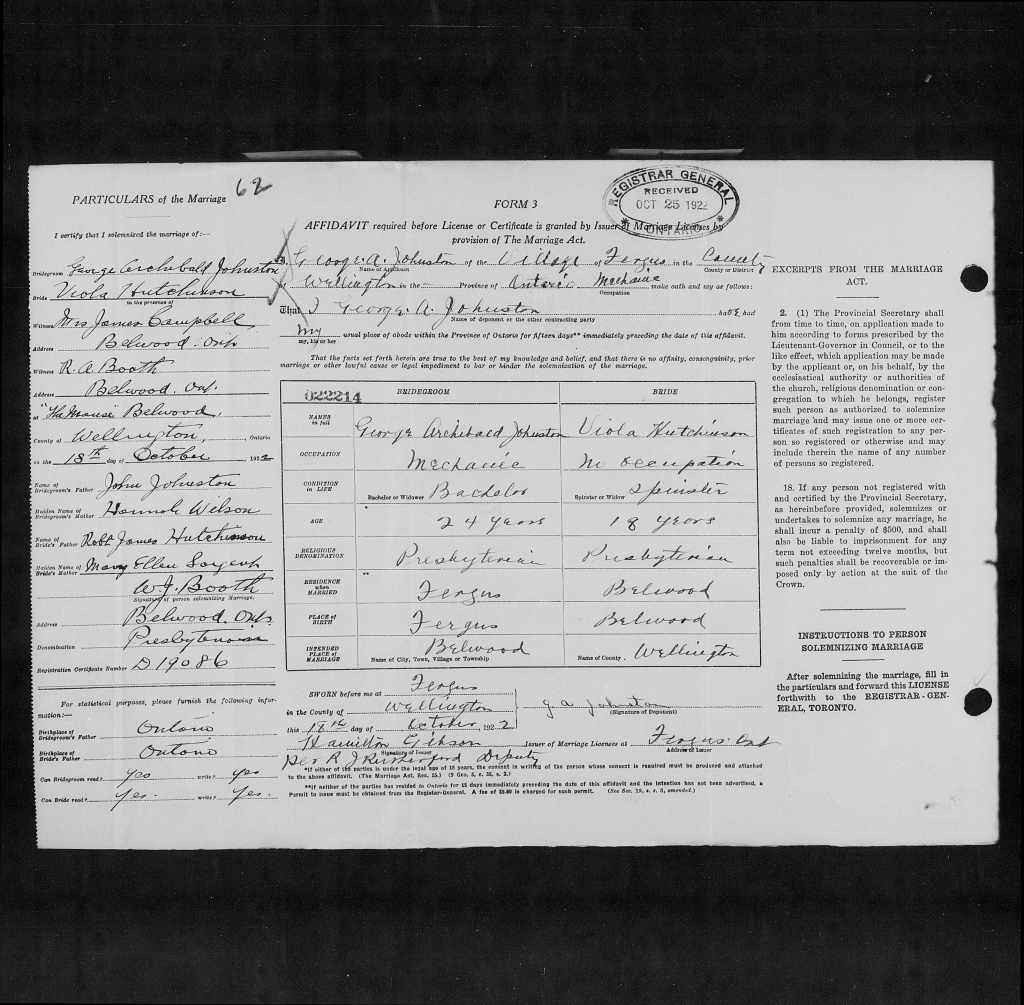 62
PARTICULARS of the Marriage
I certify that I solemnized the marriage of:—
Bridegroom George Archibald Johnston
Bride Viola Hutchinson
in the presence of
Witness Mrs James Campbell
Address Belwood. Ont
Witness R. A. Booth
Address Belwood. Ont.
at "The Manse" Belwood,
County of Wellington, Ontario
on the 18th day of October 1922
Name of Bridegroom's Father John Johnston
Maiden Name of Bridegroom's Mother Hannah Wilson
Name of Bride's Father Robt James Hutchinson
Maiden Name of Bride's Mother Mary Ellen Sargent
W. J. Booth
Signature of person solemnizing Marriage.
Address Belwood. Ont.
Denomination Presbyterian
Registration Certificate Number D19086
For statistical purposes, please furnish the following information:—
Birthplace of Bridegroom's Father Ontario
Birthplace of Bride's Father Ontario
Can Bridegroom read? Yes write? Yes
Can Bride read? Yes. write? Yes.
REGISTRAR GENERAL
RECEIVED
OCT 25 1922
ONTARIO
FORM 3
AFFIDAVIT required before License or Certificate is granted by Issuer of Marriage Licenses by
provision of The Marriage Act.
I, George A. Johnston of the Village of Fergus in the County
Name of Applicant County or District
of Wellington in the — Province of Ontario Mechanic make oath and say as follows:
Occupation
That I George A. Johnston have had
Name of deponent or the other contracting party
My usual place of abode within the Province of Ontario for fifteen days** immediately preceding the date of this affidavit.
my, his or her
That the facts set forth herein are true to the best of my knowledge and belief, and that there is no affinity, consanguinity, prior
marriage or other lawful cause or legal impediment to bar or hinder the solemnization of the marriage.
022214 BRIDEGROOM BRIDE
NAMES in full George Archibald Johnston Viola Hutchinson
OCCUPATION Mechanic no occupation
CONDITION in LIFE Bachelor or Widower Bachelor Spinster or Widow Spinster
AGE * 24 years 18 years
RELIGIOUS DENOMINATION Presbyterian Presbyterian
RESIDENCE when MARRIED ** Fergus Belwood
PLACE of BIRTH Fergus Belwood
INTENDED PLACE of MARRIAGE Belwood Wellington
Name of City, Town, Village or Township Name of County
SWORN before me at Fergus
in the County of Wellington
this 18th day of October 1922
G A Johnston
(Signature of Deponent)
Hamilton Gibson Issuer of Marriage Licenses at Fergus Ont
Signature of Issuer Address of Issuer
Per R J Rutherford Deputy
*If either of the parties is under the legal age of 18 years, the consent in writing of the person whose consent is required must be produced and attached
to the above affidavit. (The Marriage Act, Sec. 15.) (9 Geo. 5, c. 35, s. 2.)
**If neither of the parties has resided in Ontario for 15 days immediately preceding the date of this affidavit and the intention has not been advertised, a
Permit to issue must be obtained from the Registrar-General. A fee of $5.00 is charged for such permit. (See Sec. 19, s. s. 3, amended.)
EXCERPTS FROM THE MARRIAGE
ACT.
2. (1) The Provincial Secretary shall
from time to time, on application made to
him according to forms prescribed by the
Lieutenant-Governor in Council, or to the
like effect, which application may be made
by the applicant or, on his behalf, by the
ecclesiastical authority or authorities of
the church, religious denomination or con-
gregation to which he belongs, register
such person as authorized to solemnize
marriage and may issue one or more certi-
ficates of such registration to any per-
son so registered or otherwise and may
include therein the name of any number
of persons so registered.
18. If any person not registered with
and certified by the Provincial Secretary,
as hereinbefore provided, solemnizes or
undertakes to solemnize any marriage, he
shall incur a penalty of $500, and shall
also be liable to imprisonment for any
term not exceeding twelve months, but
such penalties shall be recoverable or im-
posed only by action at the suit of the
Crown.
INSTRUCTIONS TO PERSON
SOLEMNIZING MARRIAGE
After solemnizing the marriage, fill in
the particulars and forward this LICENSE
forthwith to the REGISTRAR-GEN-
ERAL, TORONTO.